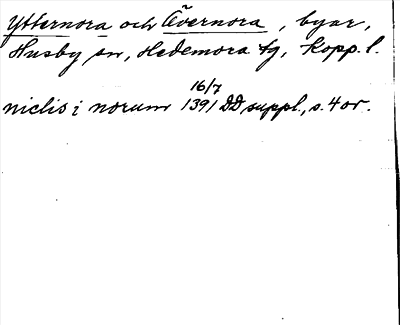 Ytternora och Övernora, byar,
Husby sn, Hedemora tg, Kopp. l.
16/7
niclis i norum 1391 DD suppl., s. 4 or.